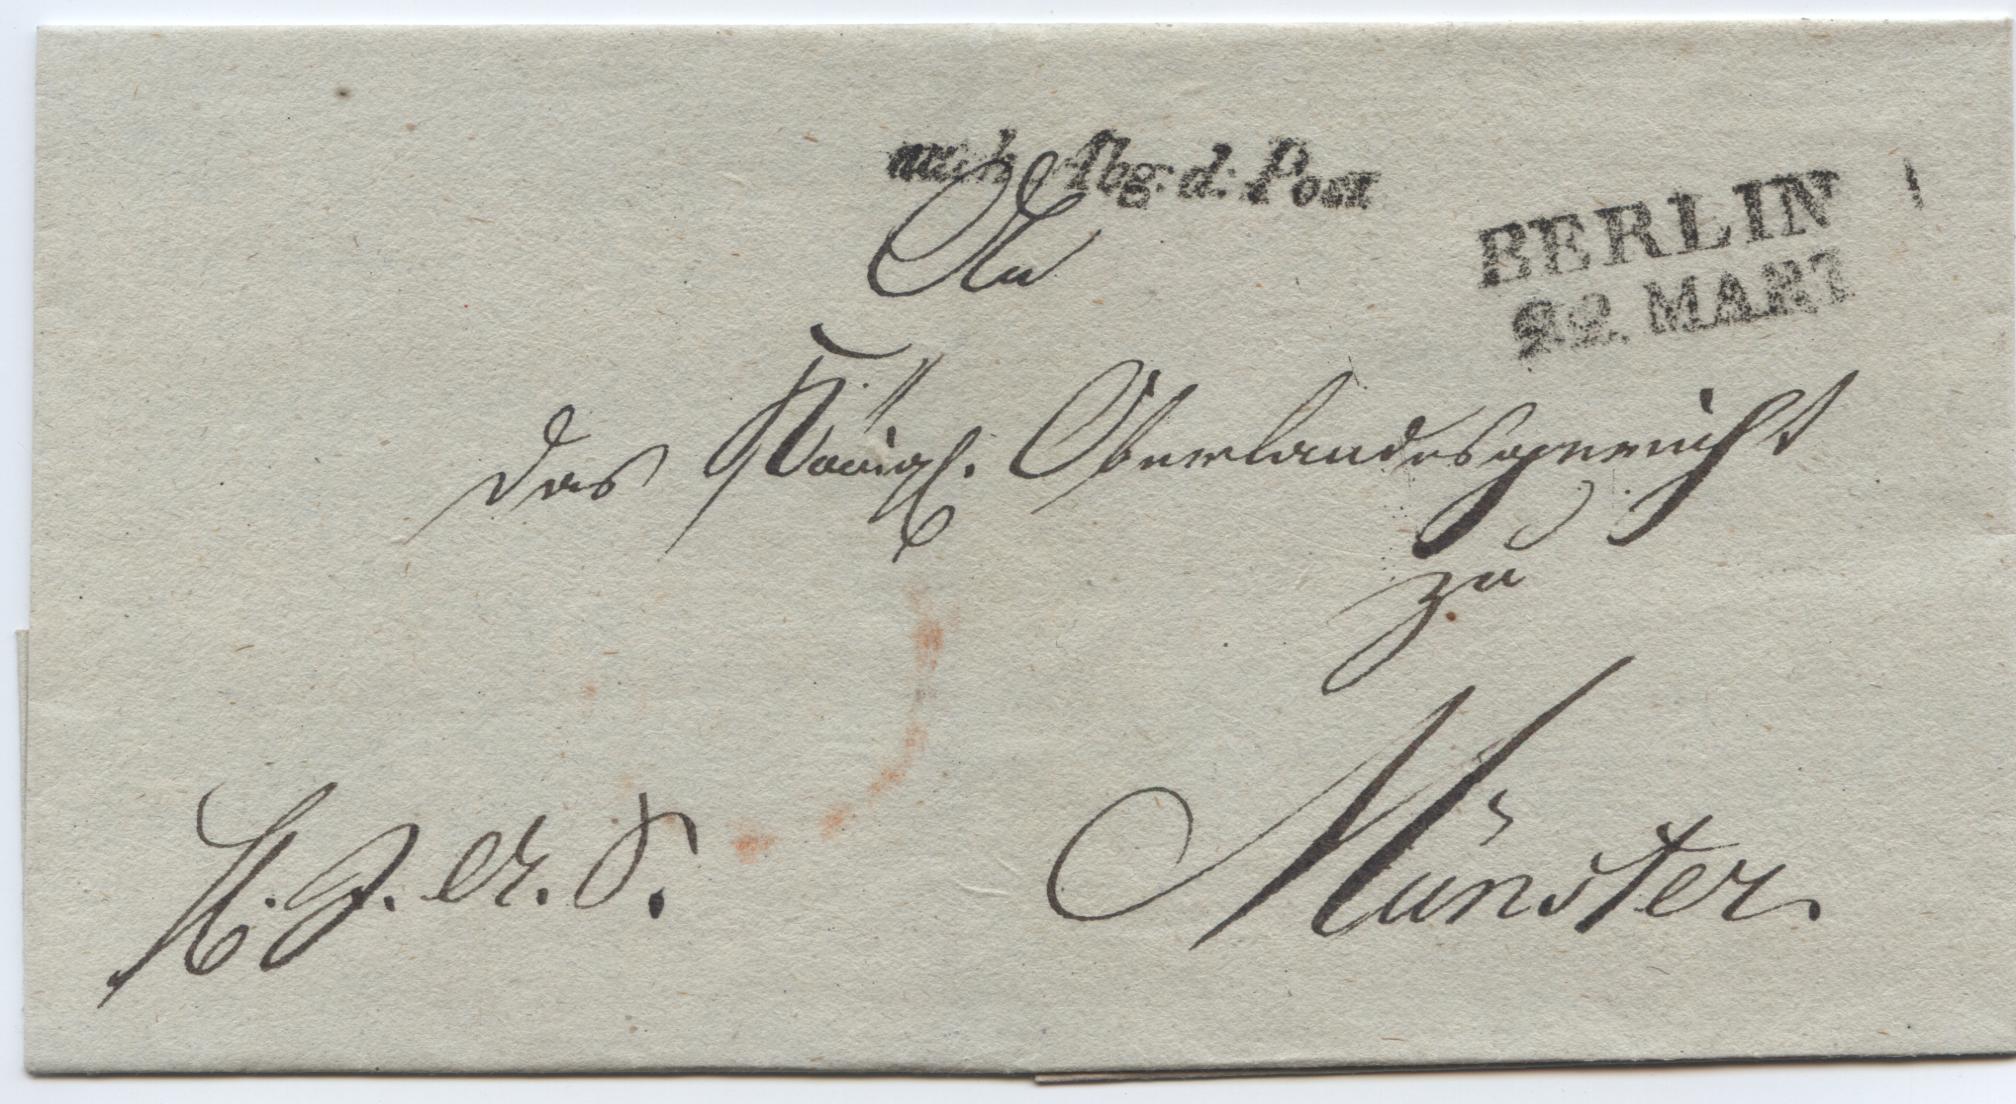 nach Abg: d: Post
BERLIN
22. MART
An
das Königl. Oberlandesgericht
zu
Münster.